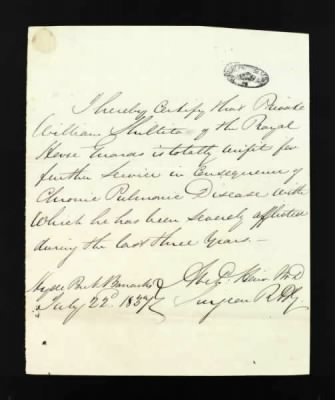 I hereby Certify that Private
William Shilleto of the Royal
Horse Guards is totally unfit for
further service in Consequence of
Chronic Pulmonic Disease with
Which he has been Severely afflicted
during the last three Years.—
Hyde Park Barracks
July 22d. 1837
Surgeon R.H.G